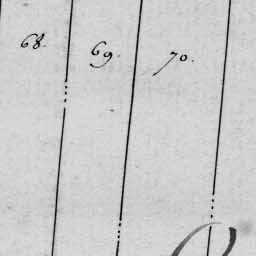 68. 69. 70.